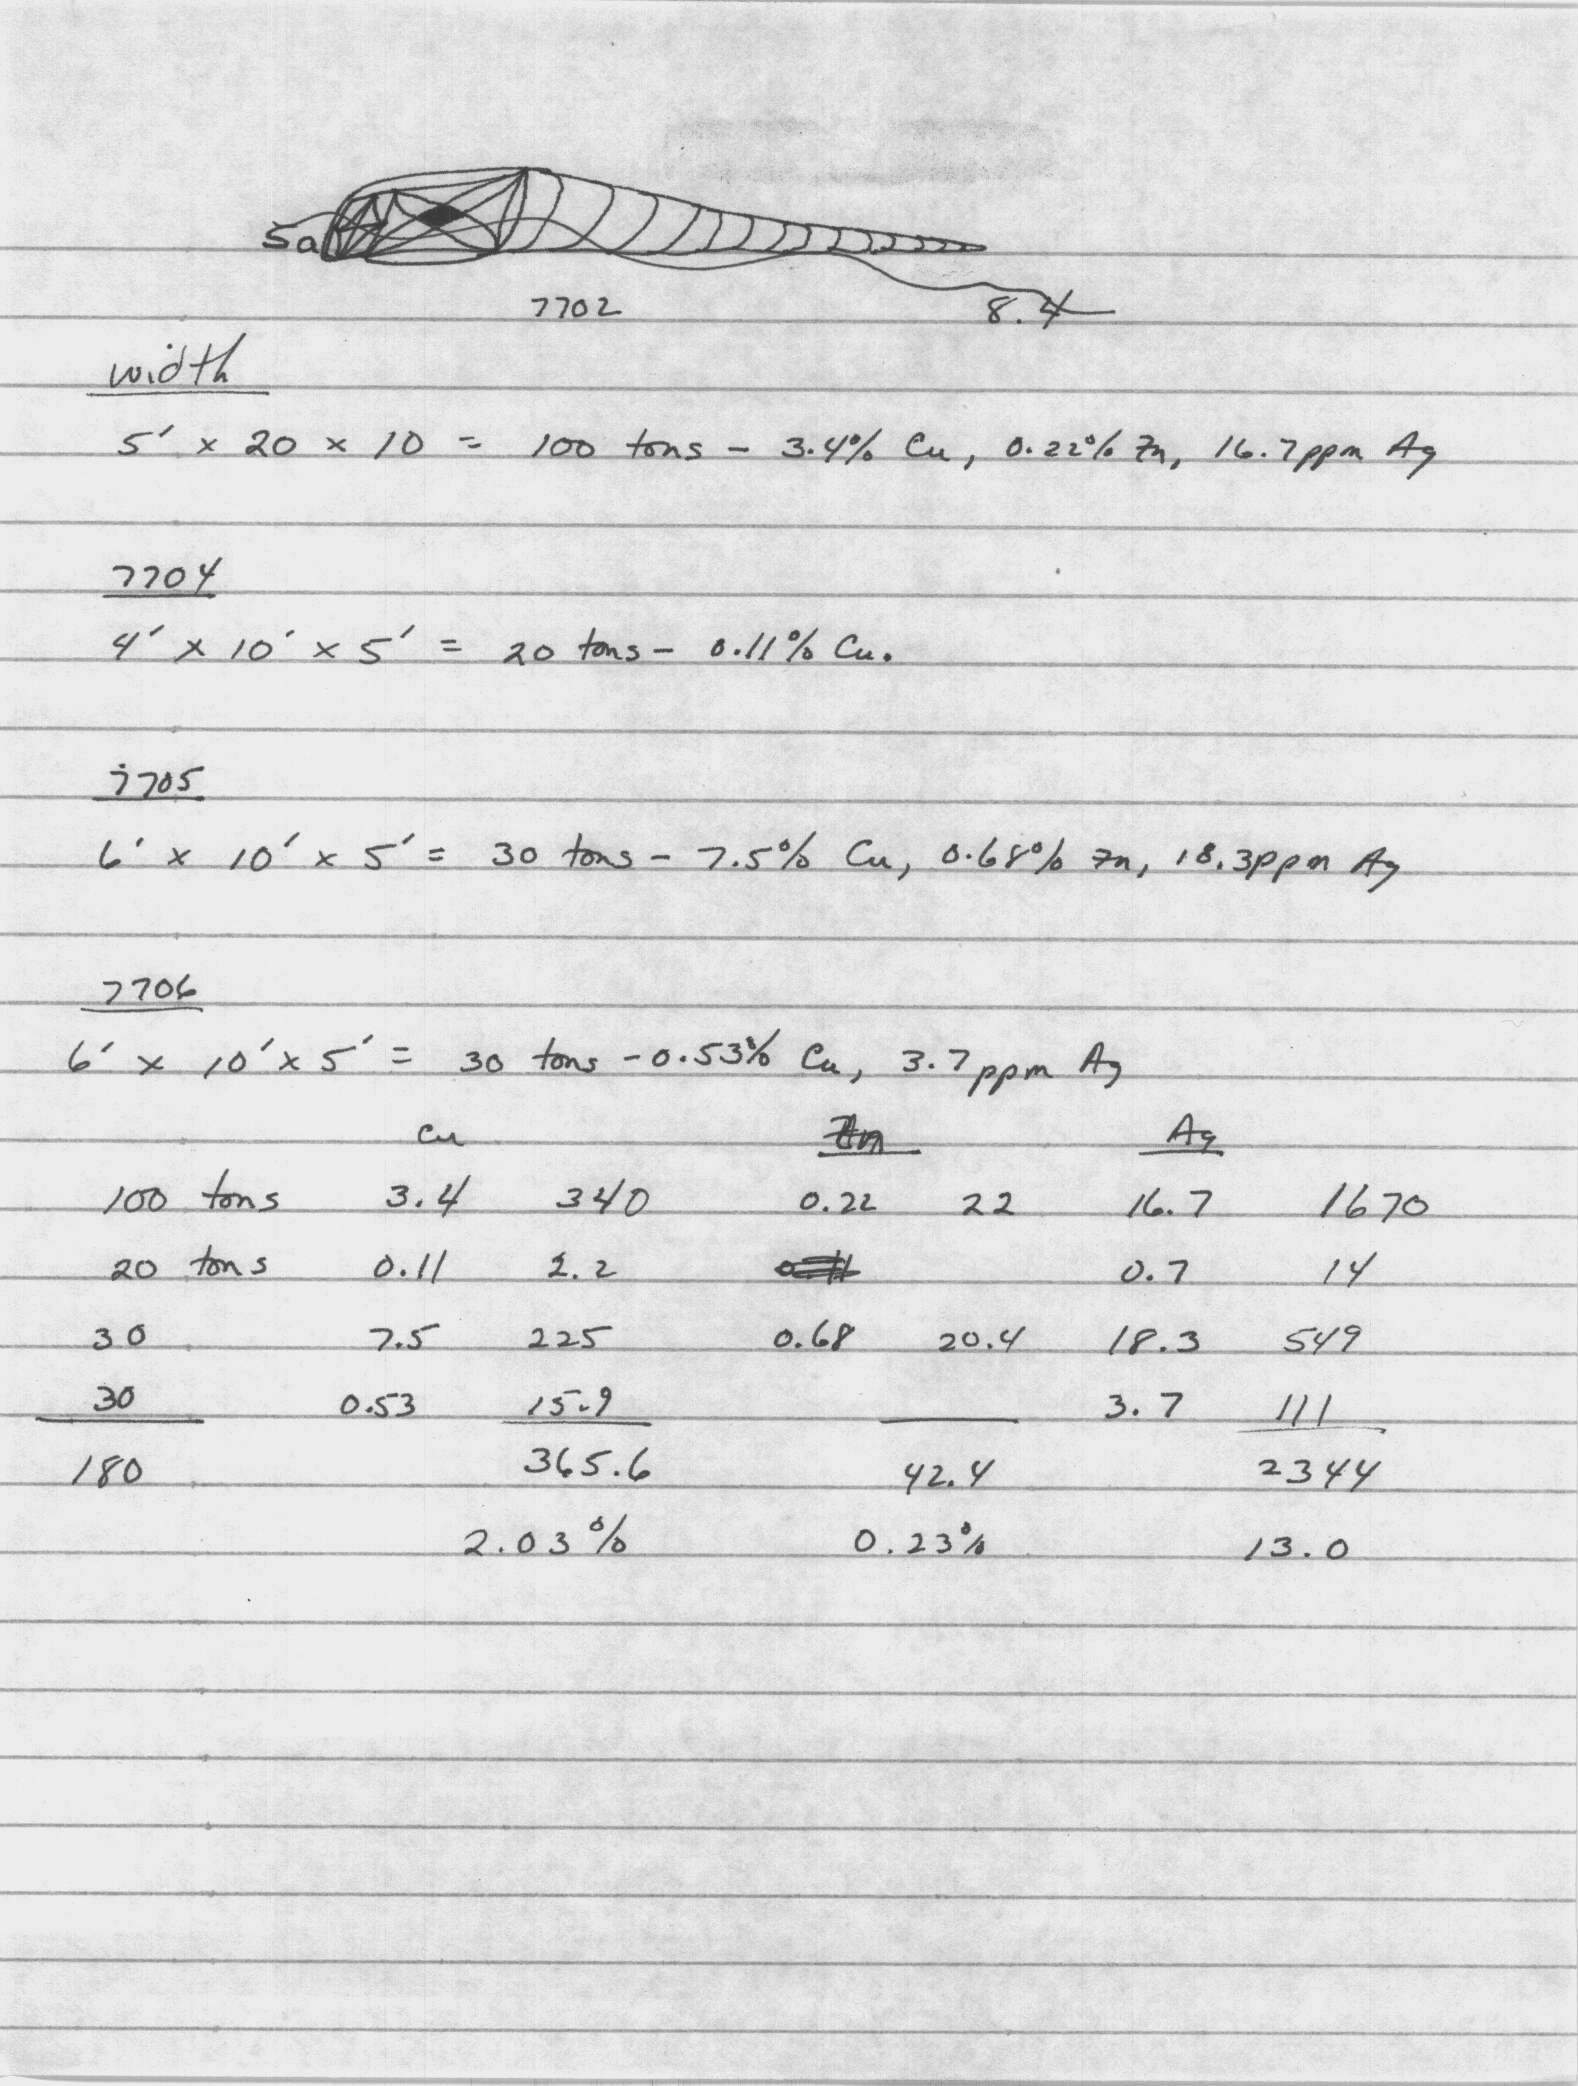 5a
7702 8.4
width
5' x 20 x 10 = 100 tons - 3.4% Cu, 0.22% Zn, 16.7ppm Ag
7704
4' x 10' x 5' = 20 tons - 0.11% Cu.
7705
6' x 10' x 5' = 30 tons - 7.5% Cu, 0.68% Zn, 18.3ppm Ag
7706
6' x 10' x 5' = 30 tons - 0.53% Cu, 3.7ppm Ag
Cu Zn Ag
100 tons 3.4 340 0.22 22 16.7 1670
20 tons 0.11 2.2 0.7 14
30 7.5 225 0.68 20.4 18.3 549
30 0.53 15.9 3.7 111
180 365.6 42.4 2344
2.03% 0.23% 13.0